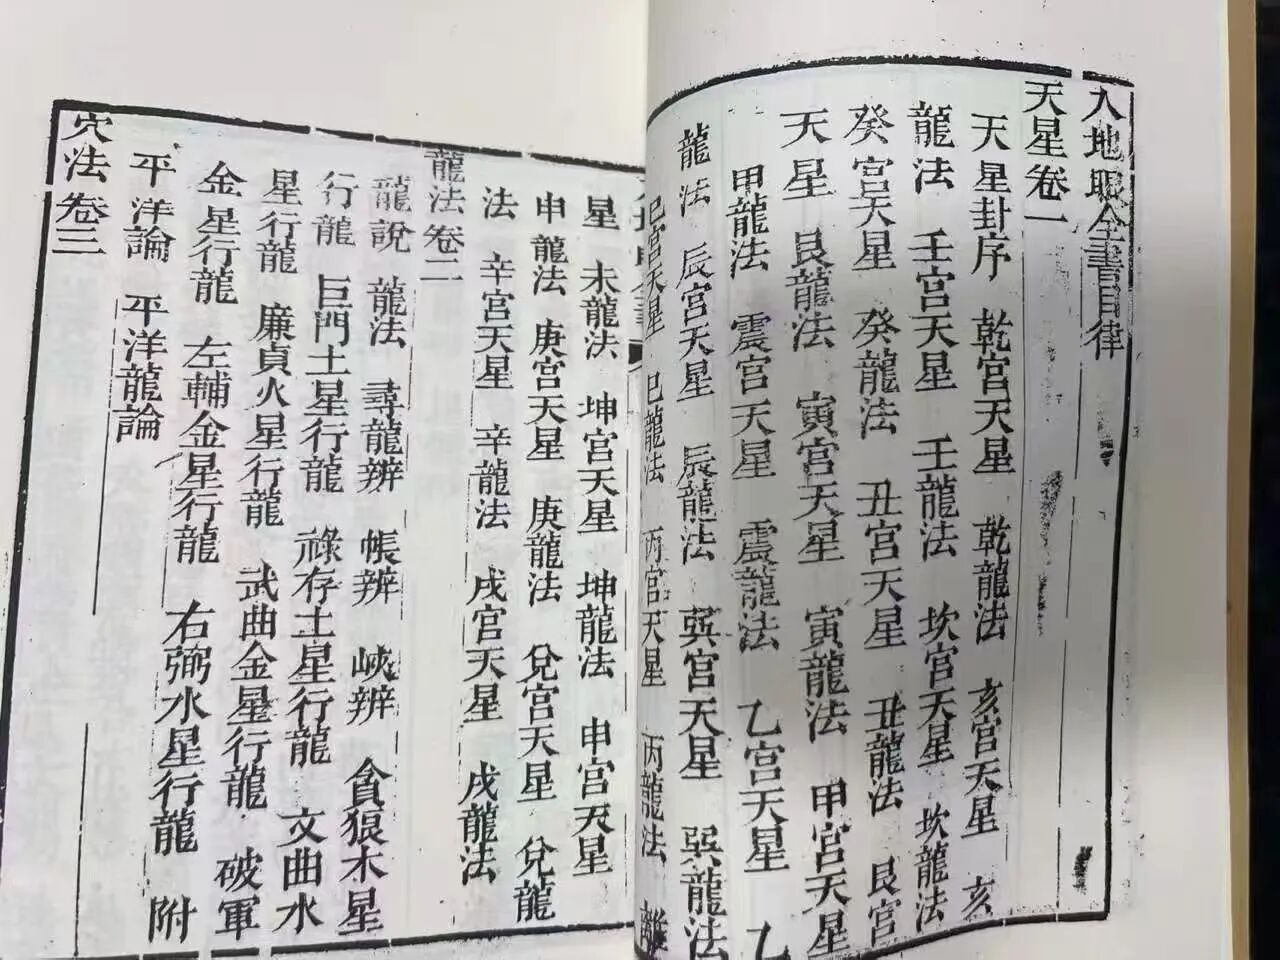 入地眼全書目律
天星卷一
天星封序 乾宮天星 乾龍法 亥宮天星 亥
龍法 壬宮天星 壬龍法 坎宮天星 坎龍法
癸宮天星 癸龍法 丑宮天星 丑龍法 艮宮
天星 艮龍法 寅宮天星 寅龍法 甲宮天星
甲龍法 震宮天星 震龍法 乙宮天星 乙
龍法 辰宮天星 辰龍法 巽宮天星 巽龍法
巳宮天星 巳龍法 丙宮天星 丙龍法 離
星 未龍法 坤宮天星 坤龍法 申宮天星
申龍法 庚宮天星 庚龍法 兌宮天星 兌龍
法 辛宮天星 辛龍法 戌宮天星 戌龍法
龍法卷二
龍說 龍法 尋龍辨 帳辨 峽辨 貪狼木星
行龍 巨門土星行龍 祿存土星行龍 文曲水
星行龍 廉貞火星行龍 武曲金星行龍 破軍
金星行龍 左輔金星行龍 右弼水星行龍 附
平洋論 平洋龍論
穴法卷三